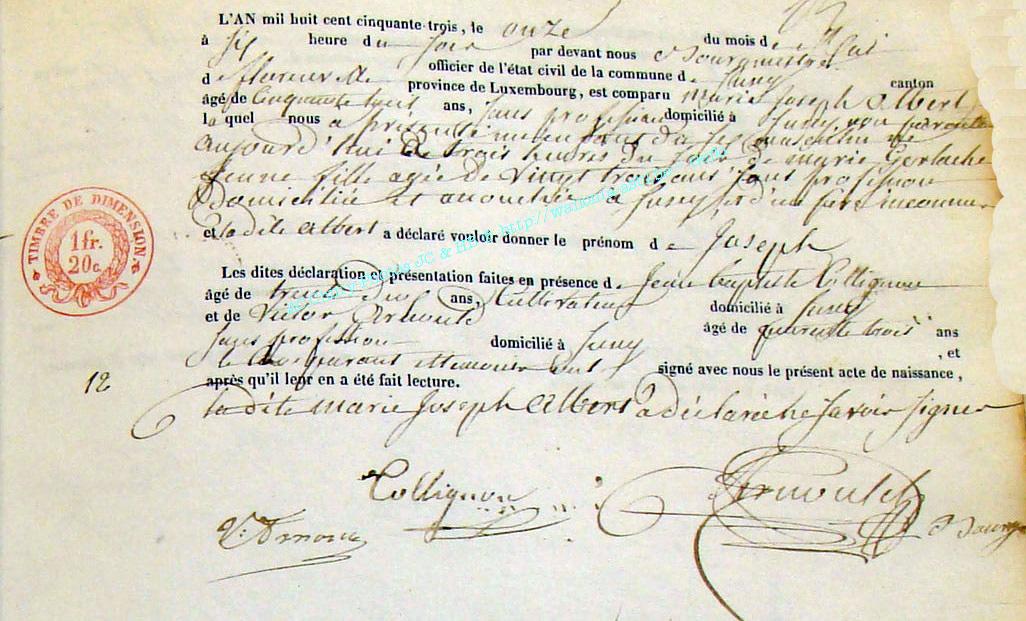 L'AN mil huit cent cinquante-trois, le onze du mois de Mai
à six heure du soir par devant nous Bourgmestre
officier de l'état civil de la commune de Juny canton
de flamierge province de Luxembourg, est comparu Marie Joseph Albert
âgé de cinquante huit ans, sans profession domicilié à Juny
la quel nous a présenté un enfant du sexe masculin né
aujourd'hui à trois heures du jour de marie Gerlache
jeune fille agée de vingt trois ans sans profession
Domiciliée et à Juny et d'un père inconnu
et la dite Albert a déclaré vouloir donner le prénom de Joseph
Les dites déclaration et présentation faites en présence de Jean baptiste Collignon
âgé de trente ans, Cultivateur domicilié à Juny
et de Victor Arnould âgé de quarante trois ans
sans profession domicilié à Juny , et
le et temoins ont signé avec nous le présent acte de naissance,
après qu'il leur en a été fait lecture.
la dite Marie Joseph Albert a déclaré ne savoir signer
Collignon
Arnould
V. Arnould
TIMBRE DE DIMENSION.
1 fr.
20 c.
12